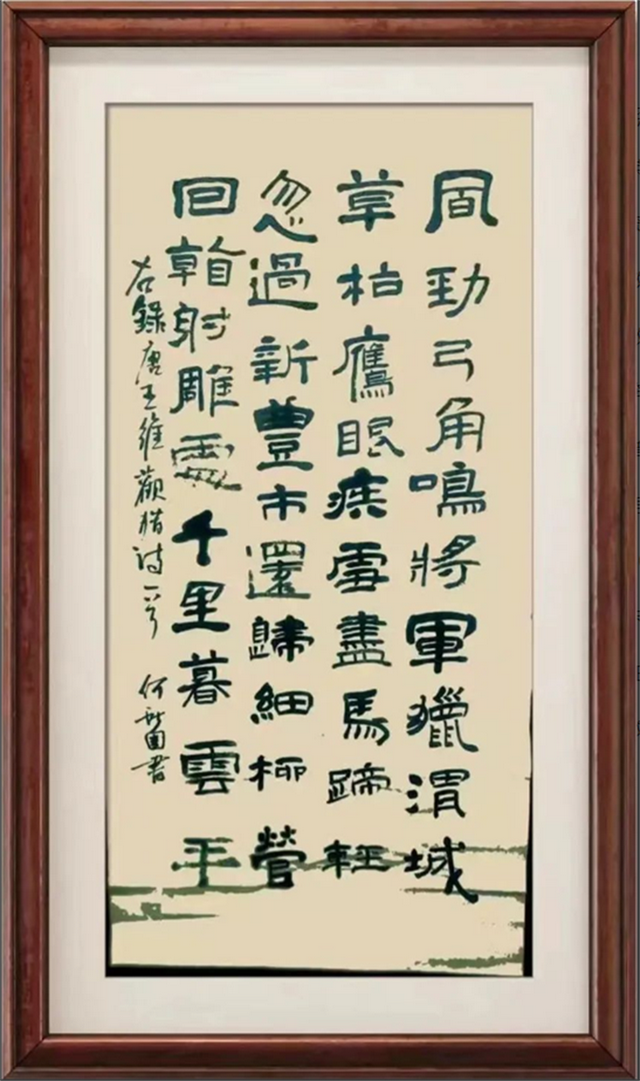 風勁弓角鳴將軍獵渭城
草枯鷹眼疾雪盡馬蹄輕
忽過新豐市還歸細柳營
回看射雕處千里暮雲平
右錄唐王維觀猎诗一首 何書